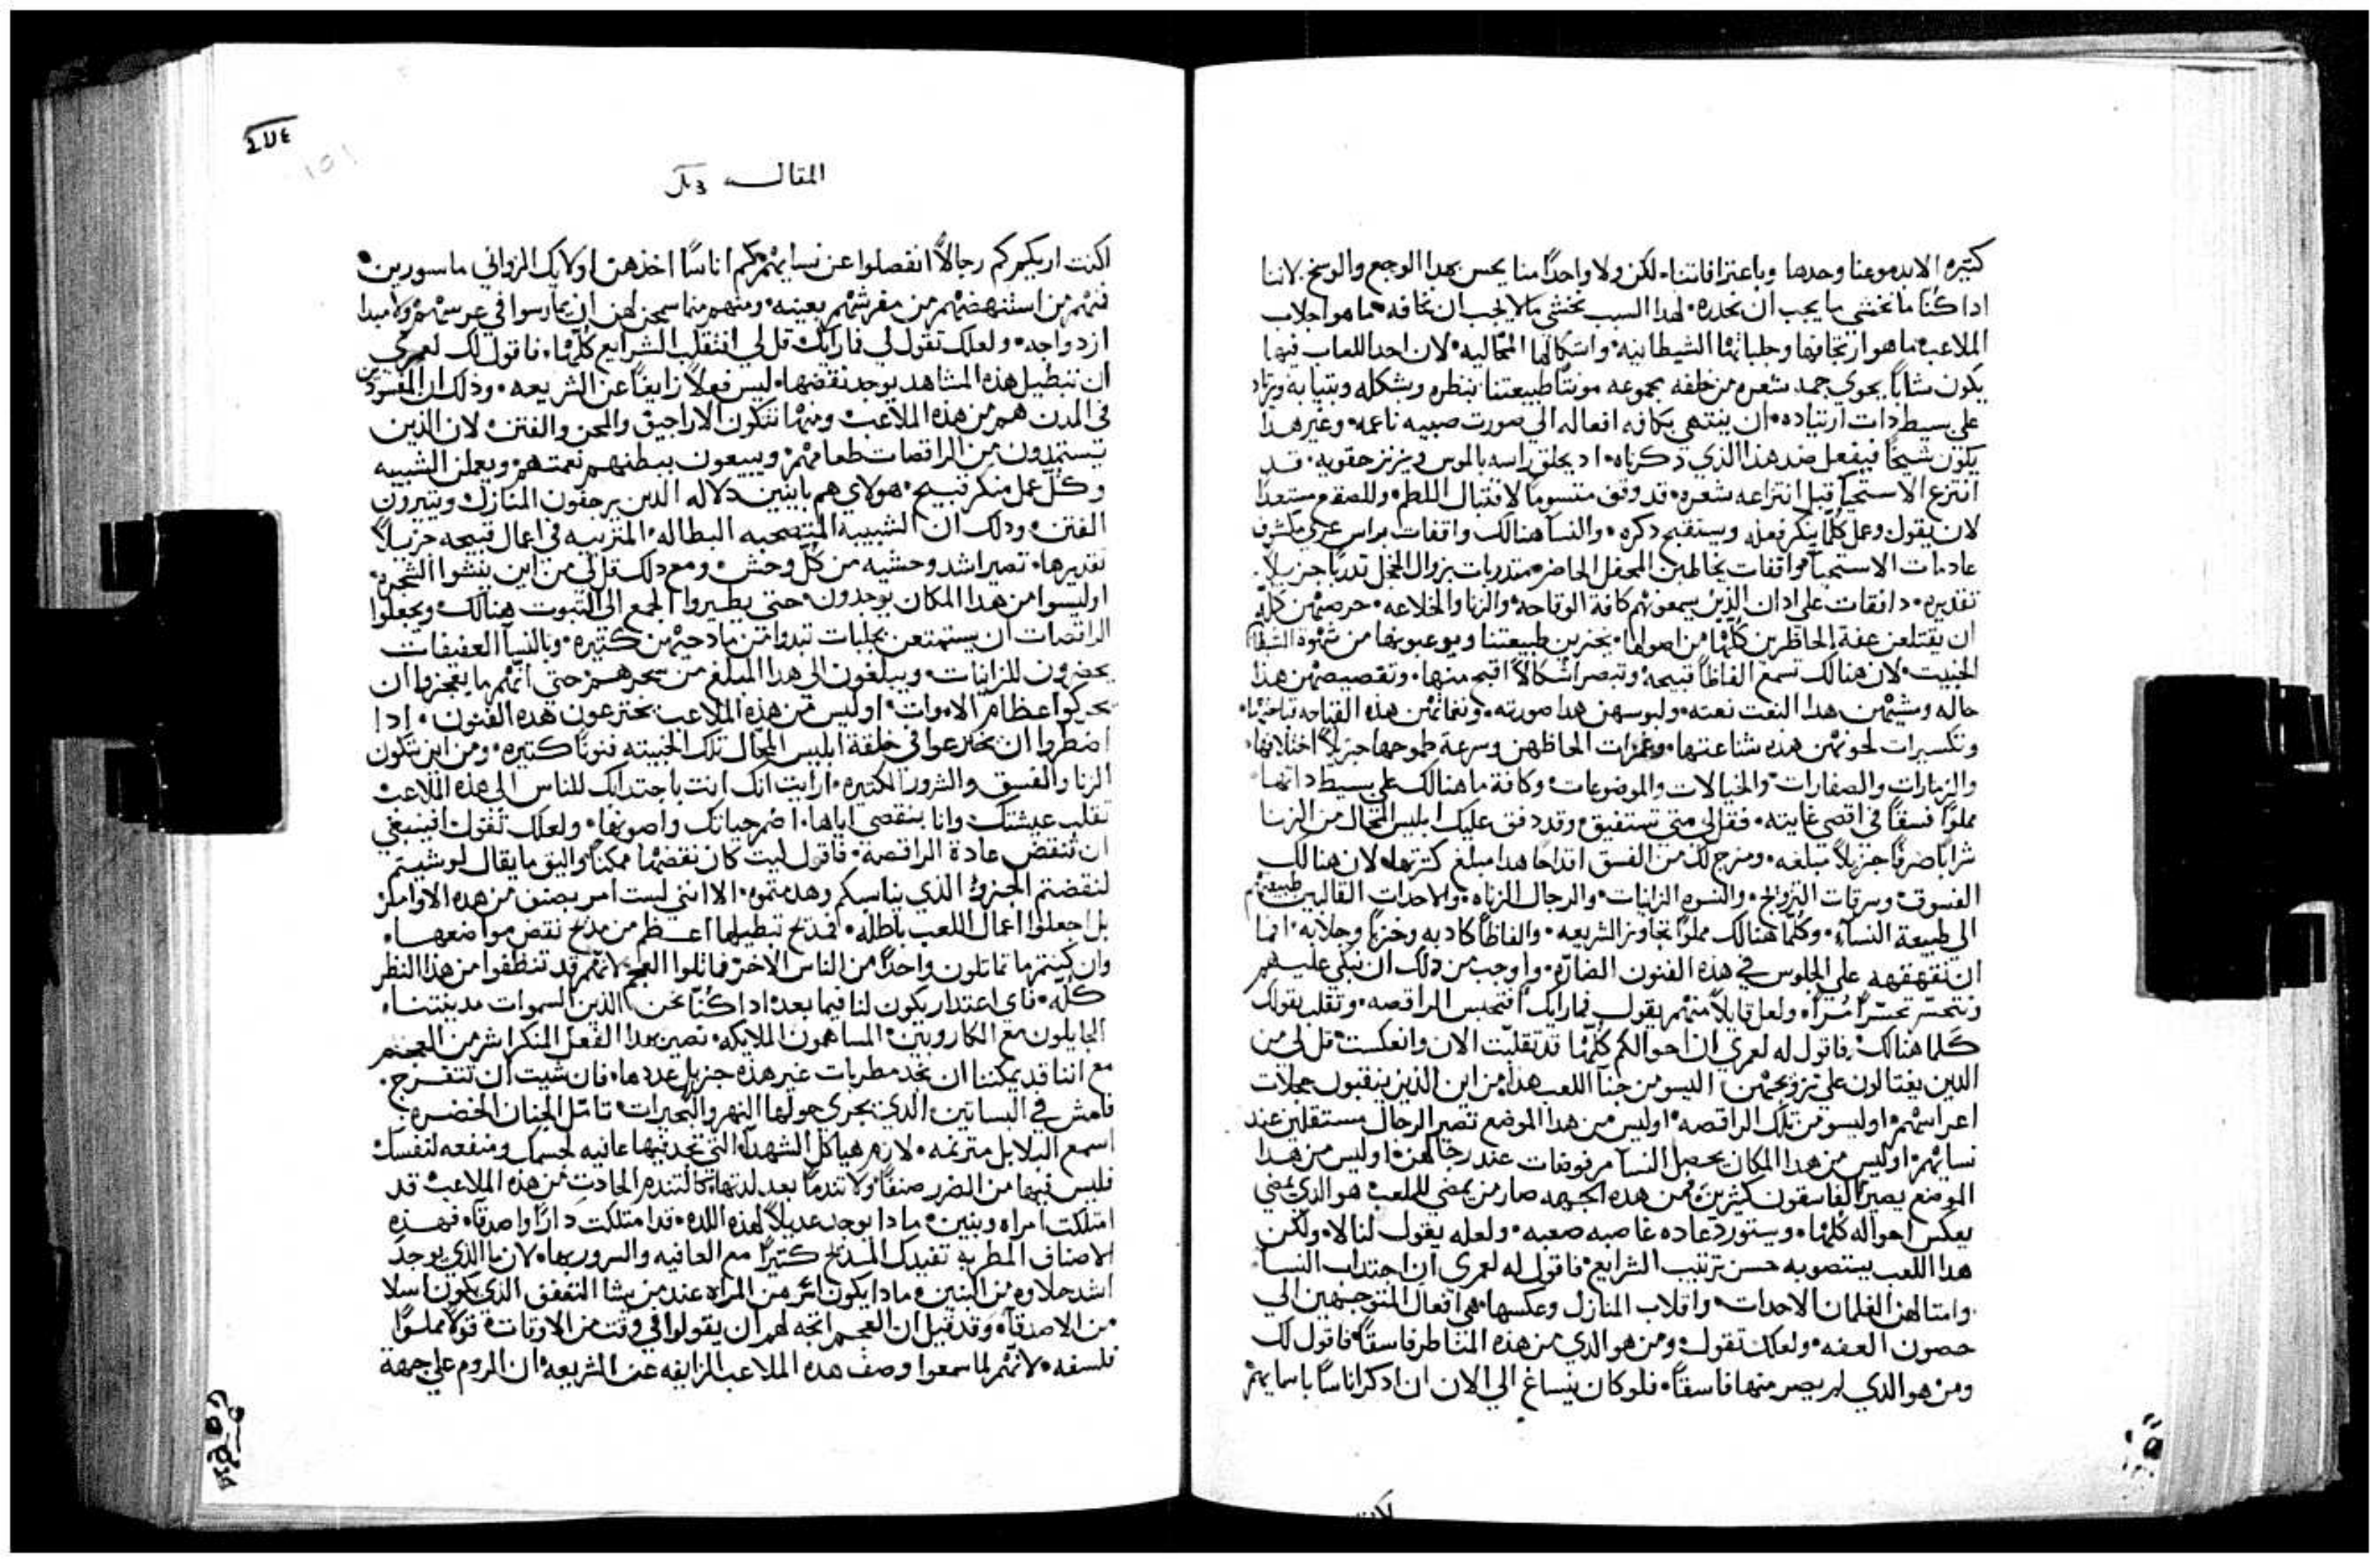 كثيره الا بدموعنا وحدها وباعترافاتنا، لكن ولا واحدًا منا يحس بهدا الوجع والوسخ. لاننا
ادا كنا ما نخشي ما يجب ان نحدره، لهدا السبب نخشي ما لا يجب ان نخافه، ما هو اجلاب
الملاعب ما هو ارتجاتها وجلباتها الشيطانيه، واشكالها المحاليه، لان احد اللعاب فيها
يكون شابًا يحوي جمد شعره من خلفه بجموعه مونثًا طبيعتنا بنظره وبشكله وبثيابه
علي بسيط دات ارتياده، ان ينتهي بكافه افعاله الي صورت صبيه ناعمه، وغير هدا
يكون شيخًا فيفعل ضد هدا الذي دكرناه، اد يحلق راسه بالموس ويزنر حقويه، قد
انتزع الاستحيا قبل انتزاعه شعره، قد وقف متسومًا لاقتبال اللطم، وللصفع مستعدًا
لان يقول وعمل كلما ينكر فعله ويستقبح دكره، والنسا هنالك واقفات براس عري مكشوف
عادمات الاستحيا واقفات يخاطبن المحفل الحاضر، متدربات بزوال الخجل تدربًا جزيلاً
تقديره، دافقات علي ادان الذين يسمعونهم كافة الوقاحه، والزنا والخلاعه، حرصهن كله
ان يقتلعن عفة الحاظرين كلها من اصولها،
الخبيت، لان هنالك تسمع الفاظًا قبيحه، وتبصر اشكالاً اقبح منها، وتقصيصهن هدا
حاله ومشيهن هدا النعت نعته، ولبوسهن هدا صورته، ونغماتهن هده القباحه
وتكسيرات لحونهن هده شناعتها، وغمزات الحاظهن وسرعة طموحها جزيلاً اختلافها،
والزمارات والصفارات، والخيالات والموضوعات، وكافة ما هنالك علي بسيط داتها
مملوًا فسقًا في اقصي غايته، فقل لي متي تستفيق، وقد دفق عليك ابليس المحال من الزنا
شرابًا صرفًا جزيلاً مبلغه، ومزج لك من الفسق اقداحًا هدا مبلغ كثرتها، لان هنالك
الفسوق، وسرقات التزويج، والنسوه الزانيات، والرجال الزناه، والاحدات القالبين طبيعتهم
الي طبيعة النساء، وكلما هنالك مملوًا تجاوز الشريعه، والفاظًا كادبه وخزيًا وجلابه، انما
ان نقهقهه علي الجلوس في هده الفنون الضاره، واوجب من دلك ان نبكي عليهم
ونتحسر تحسرًا مُرًّا، ولعل قايلاً منهم يقول فما رايك أفنحبس الراقصه، وتقلب بقولك
كلما هنالك، فاقول له لعمري ان احوالكم كلها قد تقلبت الان وانعكست، قل لي من
الدين يغتالون علي تزويجهن، اليسو من جنا اللعب هدا، من اين الدين ينقبون
اعراسهم، اوليسو من تلك الراقصه، اوليس من هدا الموضع تصير الرجال مستقلين عند
نسايهم، اوليس من هدا المكان يحصل النسا مرفوضات عند رجالهن، اوليس من هدا
الموضع يصير الفاسقون كثيرين، فمن هده الجهه صار من يمضي للملعب هو الذي يمضي
يعكس احواله كلها، ويستورد عاده غاصبه صعبه، ولعله يقول لنا لا، ولكن
هدا اللعب يستصوبه حسن ترتيب الشرايع، فاقول له لعمري ان اجتداب النسا
وامتالهن الغلمان الاحدات، واقلاب المنازل وعكسها، هي افعال المتوجهين الي
حصون العفه، ولعلك تقول، ومن هو الدي من هده المناظر فاسقًا، فاقول لك
ومن هو الدي لم يصر منها فاسقًا، فلو كان ينساغ الي الان ان ادكر اناسًا باسمايهم
المقاله
لكنت اريكم كم رجالاً انفصلوا عن نسايهم، وكم اناسًا اخدهن اولايك الزواني ماسورين،
فمنهم من استنهضنهم من مفرشهم بعينه، ومنهم
ازدواجه، ولعلك تقول لي فما رايك قل لي افنقلب الشرايع كلها، فاقول لك لعمري
ان تبطيل هده المشاهد يوجد نقضها، ليس فعلاً زايغًا عن الشريعه، ودلك ان المفسودين
في المدن هم من هده الملاعب، ومنها تتكون الاراجيق والمحن والفتن، لان الدين
يستمدون من الراقصات طعامهم، ويبيعون ببطنهم نعمتهم، ويعملن الشبيبه
وكل عمل منكر قبيح، هولاي هم بابين دلاله الدين يرجفون المنازل ويثيرون
الفتن، ودلك ان الشبيبه المتصحبه البطاله، المتربيه في اعمال قبيحه جزيلاً
تقديرها، تصير اشد وحشيه من كل وحش، ومع دلك قل لي من اين ينشوا السحره،
اوليسوا من هدا المكان يوجدون، حتي يطيروا الجمع الي الثبوت هنالك، ويجعلوا
الراقصات ان يستمتعن بجلبات تبدوا من مادحيهن كثيره، وبالنسا العفيفات
يحضرون للزانيات، ويبلغون الي هدا المبلغ من سحرهم، حتي انهم ما يعجزوا ان
يحركوا عظام الاموات، اوليس من هده الملاعب يخترعون هده الفنون، ادا
اضطروا ان يخترعوا في خلقة ابليس المحال تلك الخبيته فنونًا كثيره، ومن اين يتكون
الزنا والفسق والشرور الكثيره، ارايت انك انت باجتدابك للناس الي هده الملاعب
تقلب عيشتك وانا بنقضي اياها، اضم حياتك واصونها، ولعلك تقول افينبغي
ان تُنقض عادة الراقصه، فاقول ليت كان نقضها ممكنًا، واليق ما يقال لو شيتم
لنقضتم الجنوا الذي يناسبكم وهدمتموه، الا انني لست امر بصنف من هده الاوامر لكن
بل اجعلوا اعمال اللعب باطله، فمدح تبطيلها اعظم من مدح نقض مواضعها،
وان كنتم ما تماتلون واحدًا من الناس الاخر، فماتلوا العجم، لانهم قد تنظفوا من هدا النظر
كله، فاي اعتدار يكون لنا فيما بعد، ادا كنا نحن الذين السموات مدينتنا،
الجايلون مع الكاروبين، المساهمون الملايكه، نصير بهدا الفعل المنكر اشر من العجم
مع اننا قد يمكننا ان نجد مطربات غير هده جزيل عددها، فان شيت ان تتفرج،
فامش في البساتين الدي يجري حولها النهر والبحيرات، تامل الجنان الخضره،
اسمع البلابل مترنمه، لازم هياكل الشهدآ، التي تجد فيها عافيه لجسمك ومنفعه لنفسك
فليس فيها من الضرر صنفًا، ولا تندمًا بعد لدتها، كالتندم الحادث من هده الملاعب، قد
امتلكت امراه وبنين، مادا يوجد عديلاً لهده اللده، قد امتلكت دارًا واصدقا، فهده
الاصناف المطربه تفيدك المديح كثيرًا مع العافيه والسرور بها، لان ما الذي يوجد
اشد حلاوه من البنين، ومادا يكون اثر من المراه عند من يشا التعفف الذي يكون اسلا
من الاصدقآ، وقد قيل ان العجم اتجه لهم ان يقولوا في وقت من الاوقات، قولاً مملوًا
فلسفه، لانهم لما سمعوا وصف هده الملاعب الزايغه عن الشريعه، ان الروم علي جهة